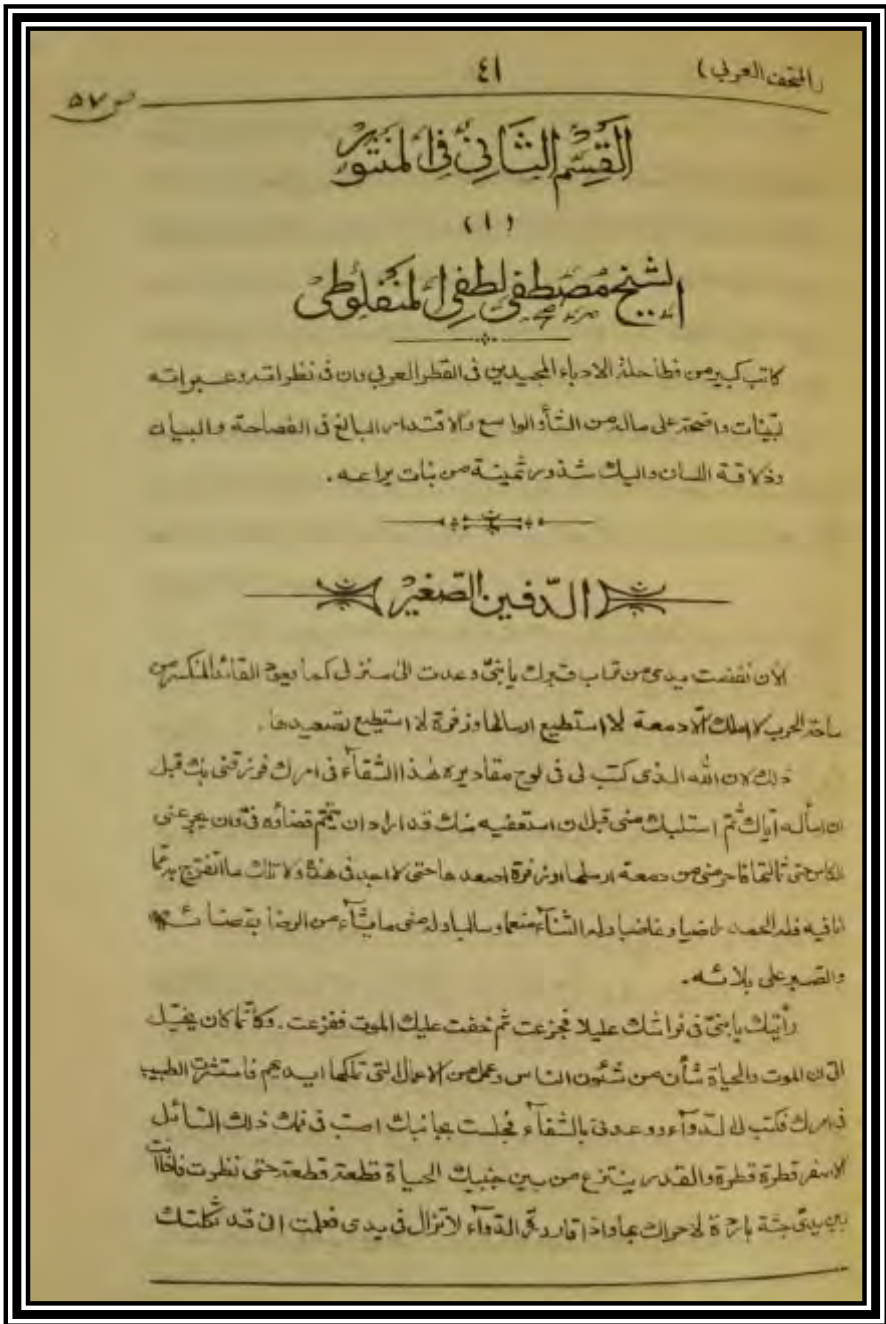 (المتحف العربي)
٤١
ص ٥٧
القسم الثاني في المنثور
(١)
الشيخ مصطفى لطفي المنفلوطي
كاتب كبير من فطاحلة الادباء المجيدين في القطر العربي وان في نظراته وعبراته
بينات واضحة على ماله من الشأو الواسع والاقتدار البالغ في الفصاحة والبيان
وذلاقة اللسان واليك شذور ثمينة من بنات يراعه.
الدفين الصغير
الآن نفضت يدي من تراب قبرك يا بنيّ وعدت الى منزلي كما يعود القائد المنكسر من
ساحة الحرب لا املك الّا دمعة لا استطيع ارسالها وزفرة لا استطيع تصعيدها.
ذلك لان الله الذي كتب لي في لوح مقاديره هذا الشقآء في امرك فرزقني بك قبل
ان اسأله اياك ثم استلبك مني قبل ان استعفيه منك قد اراد ان يتمّ قضاؤه فيّ وان يجرعني
الكاس حتى ثمالتها فاحرمني من دمعة ارسلها او زفرة اصعدها حتى لا اجد في هذه ولا تلك ما اتفرّج به ممّا
انا فيه فله الحمد راضيا وغاضبا وله الثنآء منعما وسالبا وله مني ما يشآء من الرضا بقضائه
والصبر على بلائه.
رأيتك يا بنيّ في فراشك عليلا فجزعت ثم خفت عليك الموت ففزعت. وكأنّما كان يخيّل
اليّ ان الموت والحياة شأن من شئون الناس وعمل من الاعمال التي تملكها ايديهم فاستشرت الطبيب
في امرك فكتب لي الدوآء ووعدني بالشفآء فجلست بجانبك اصبّ في فمك ذلك السائل
الاصفر قطرة قطرة والقدر ينتزع من بين جنبيك الحياة قطعة قطعة حتى نظرت فاذا انت
بين يديّ جثة باردة لا حراك بها واذا قارورة الدوآء لا تزال في يدي فعلمت اني قد ثكلتك